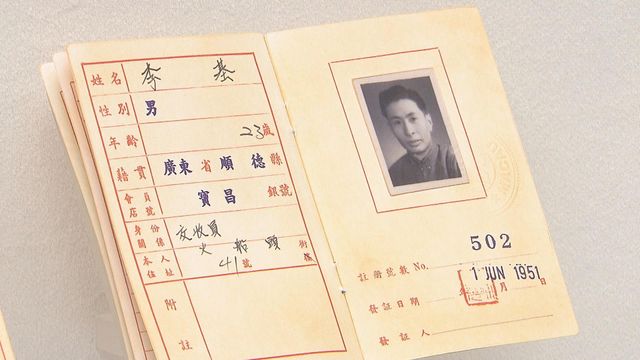 姓名 李基
性別 男
年齡 23歲
籍貫 廣東省順德縣
會員店號 寶昌 銀號
身份關係 交收員
本人住址 火船頭街
41號 樓
附註
502
註冊號數 No.
1 JUN 1951
發証日期 年 月 日
發証人